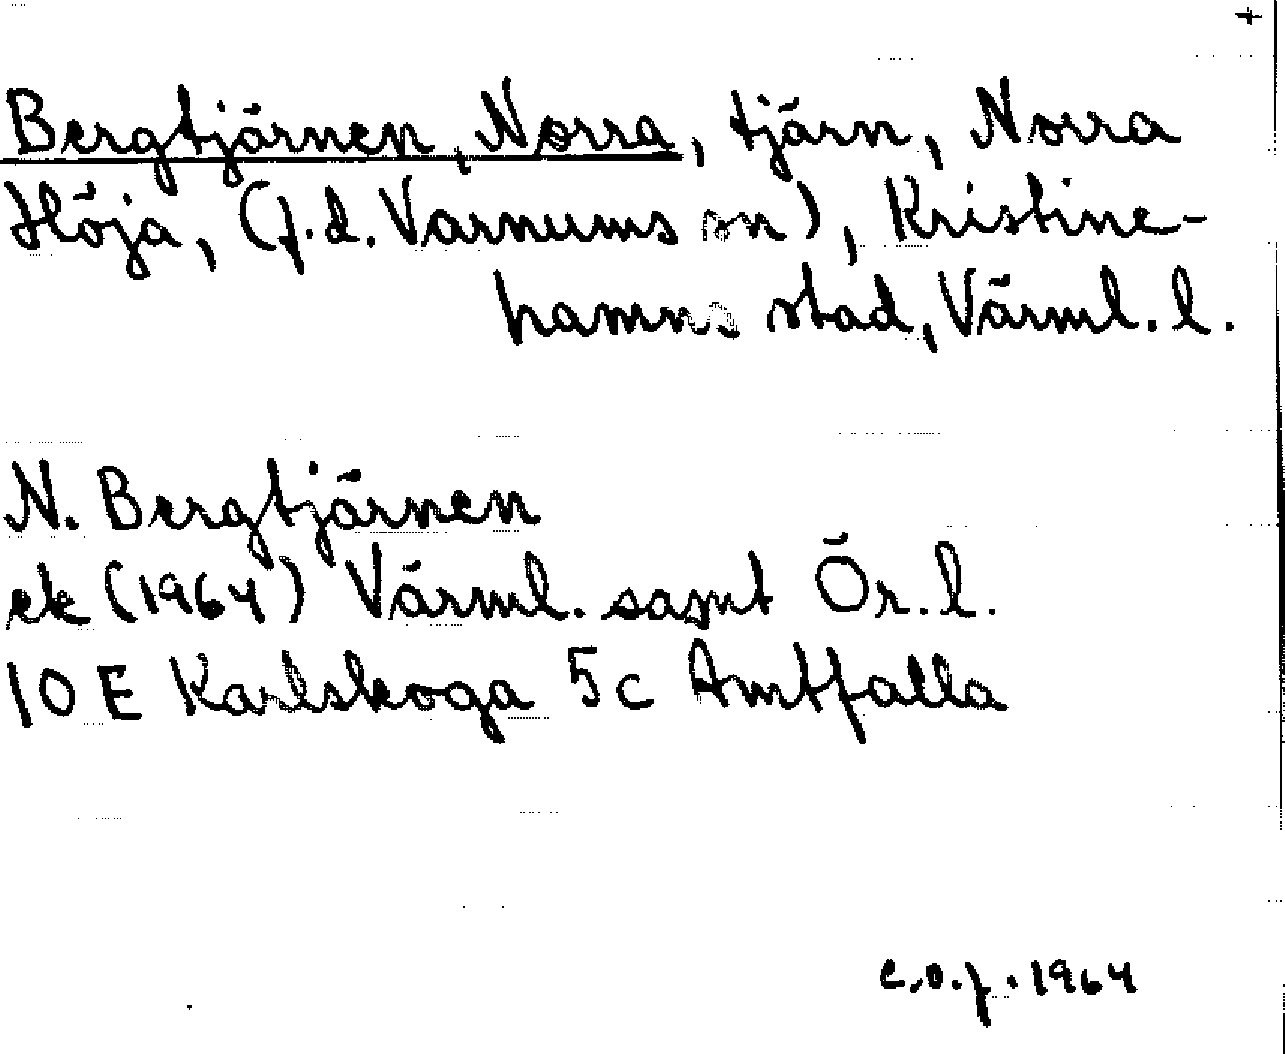 +
Bergtjärnen, Norra, tjärn, Norra
Höja, (f.d. Varnums sn), Kristine-
hamns stad, Värml. l.
N. Bergtjärnen
ek (1964) Värml. samt Ör. l.
10 E Karlskoga 5c Amtfalla
c.o.f. 1964